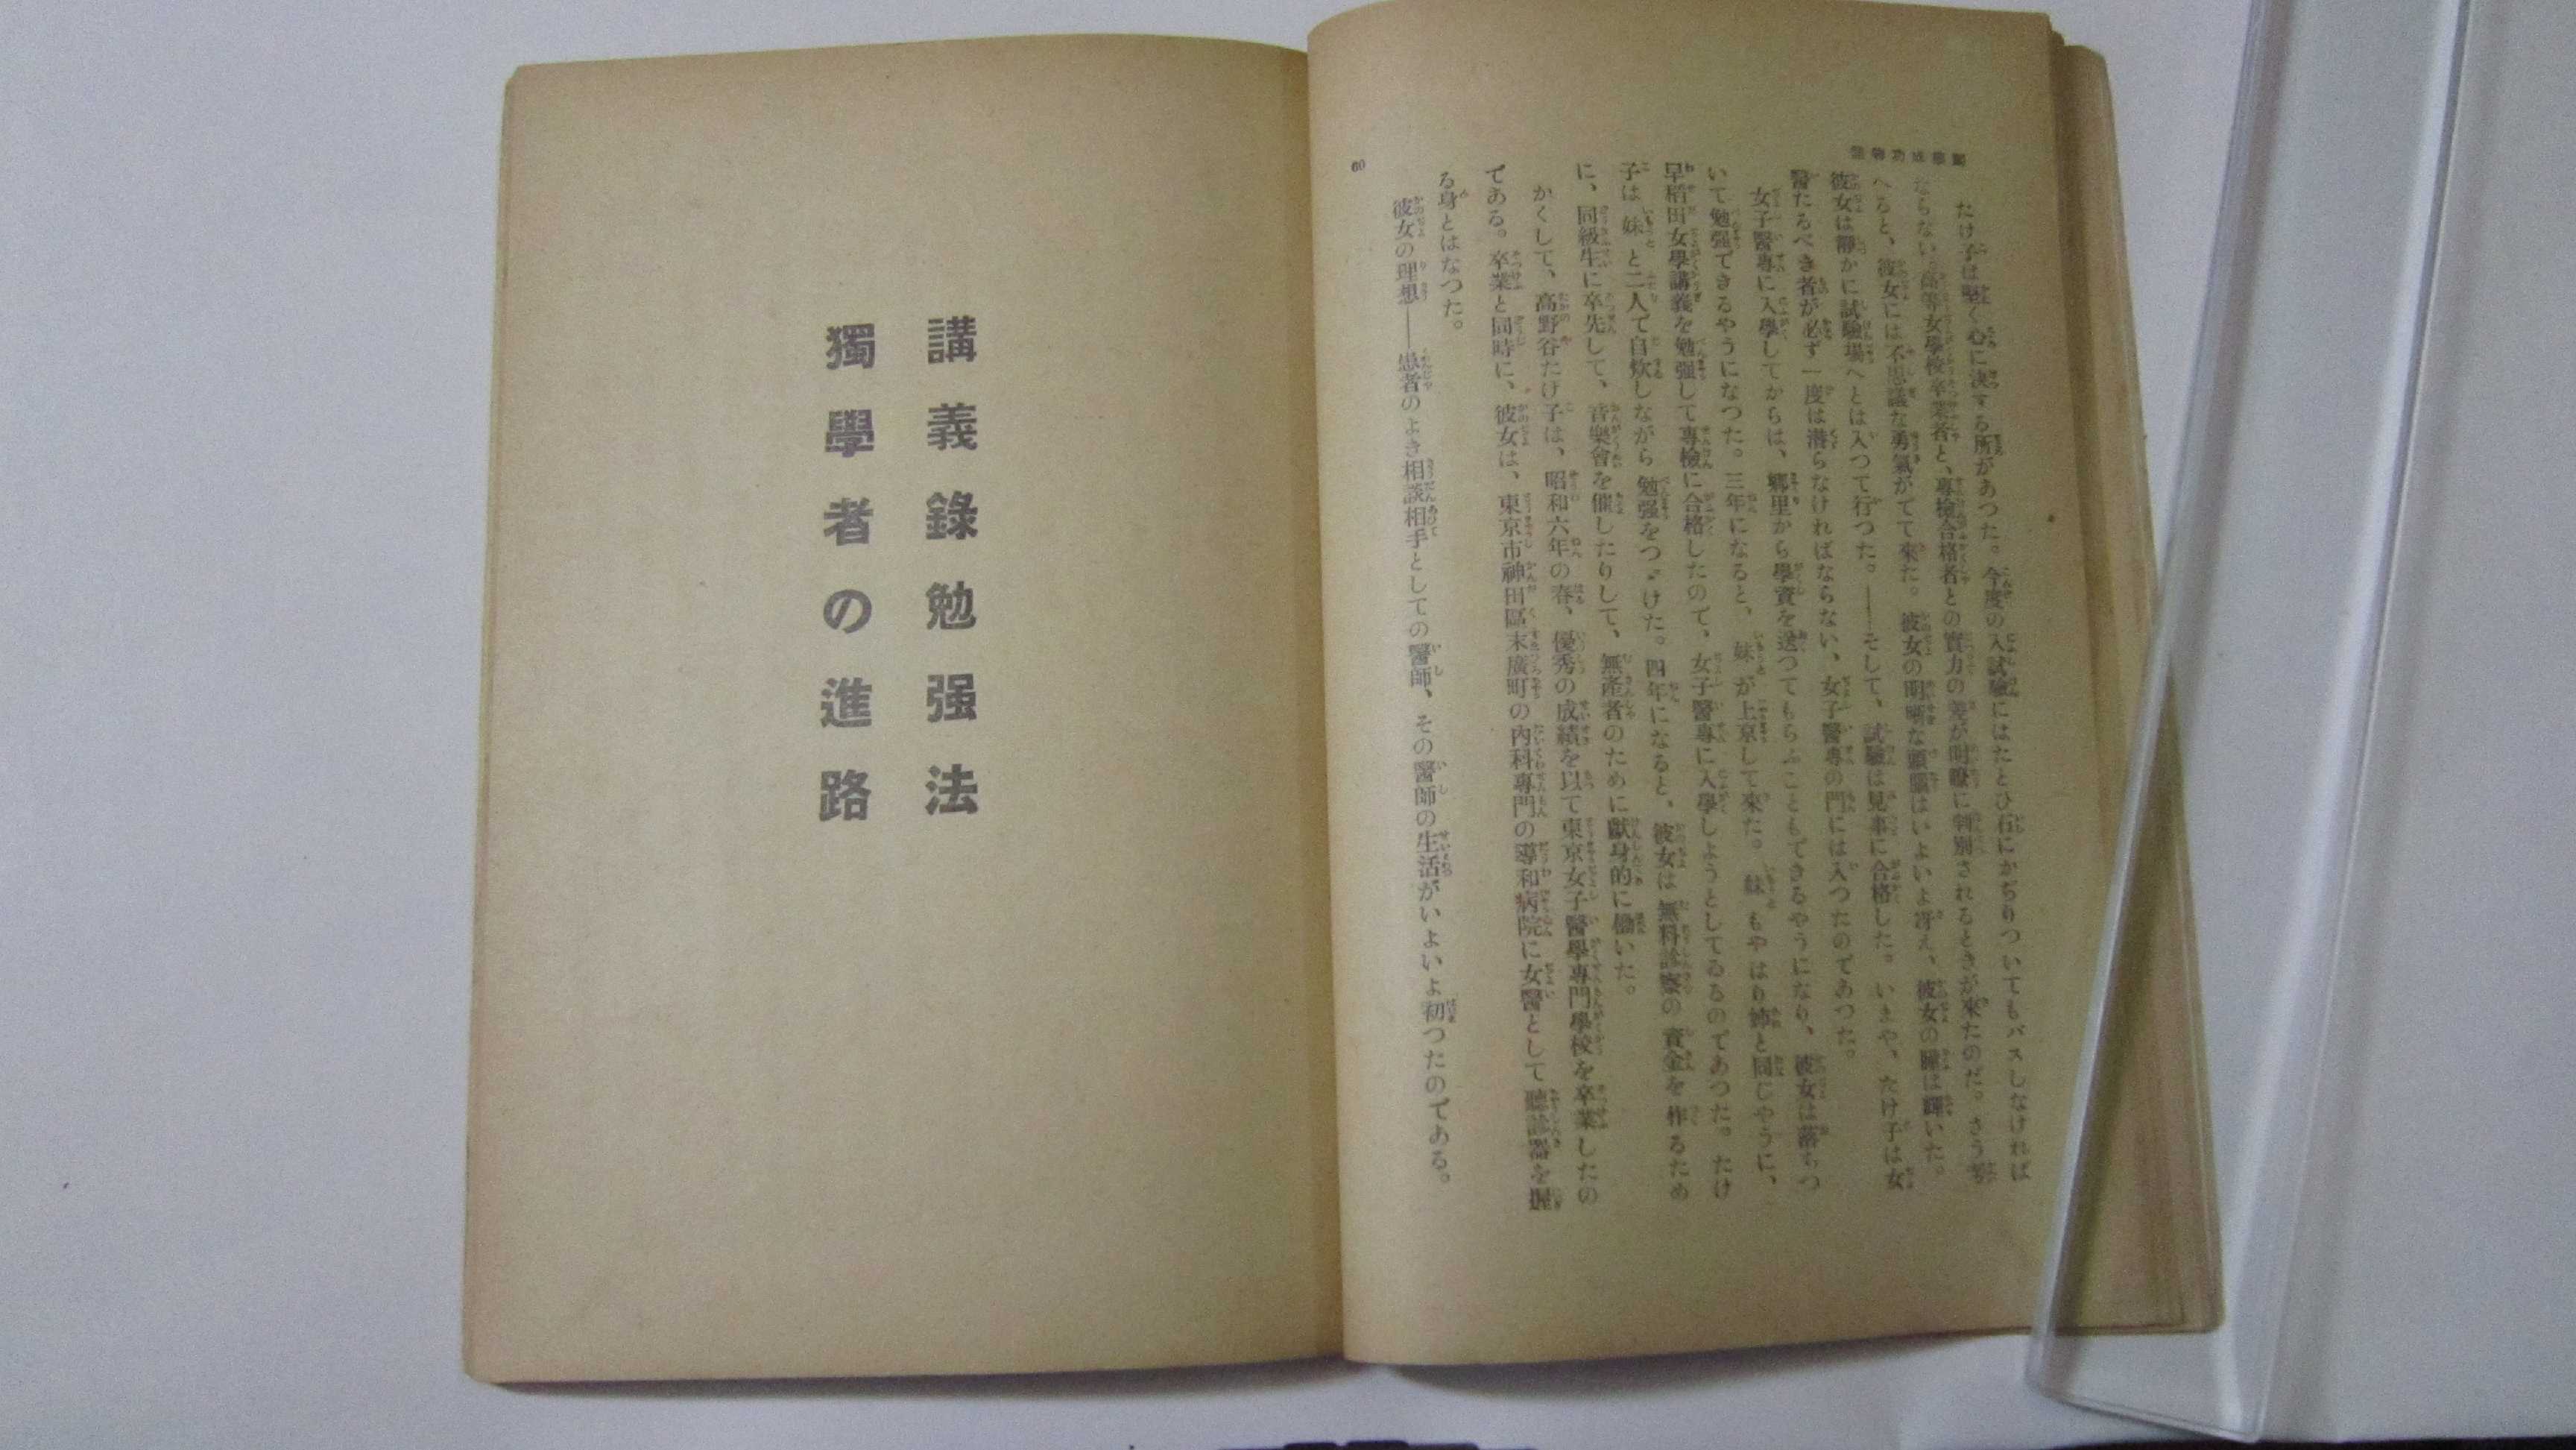 苦學成功物語
たけ子は堅く心に決する所があつた。今度の入試驗にはたとひ石にかぢりついてもパスしなければ
ならない。高等女學校卒業者と、專檢合格者との實力の差が明瞭に判別されるときが來たのだ。さう考
へると、彼女には不思議な勇氣がでて來た。彼女の明晰な頭腦はいよいよ冴え、彼女の瞳は輝いた。
彼女は靜かに試驗場へとは入つて行つた。――そして、試驗は見事に合格した。いまや、たけ子は女
醫たるべき者が必ず一度は潜らなければならない、女子醫專の門には入つたのであつた。
女子醫專に入學してからは、鄕里から學資を送つてもらふこともできるやうになり、彼女は落ちつ
いて勉强できるやうになつた。三年になると、妹が上京して來た。妹もやはり姉と同じやうに、
早稻田女學講義を勉强して專檢に合格したので、女子醫專に入學しようとしてゐるのであつた。たけ
子は妹と二人で自炊しながら勉强をつゞけた。四年になると、彼女は無料診察の資金を作るため
に、同級生に卒先して、音樂會を催したりして、無產者のために獻身的に働いた。
かくして、高野谷たけ子は、昭和六年の春、優秀の成績を以て東京女子醫學專門學校を卒業したの
である。卒業と同時に、彼女は、東京市神田區末廣町の內科專門の導和病院に女醫として聽診器を握
る身とはなつた。
彼女の理想――患者のよき相談相手としての醫師、その醫師の生活がいよいよ初つたのである。
60
講義錄勉强法
獨學者の進路